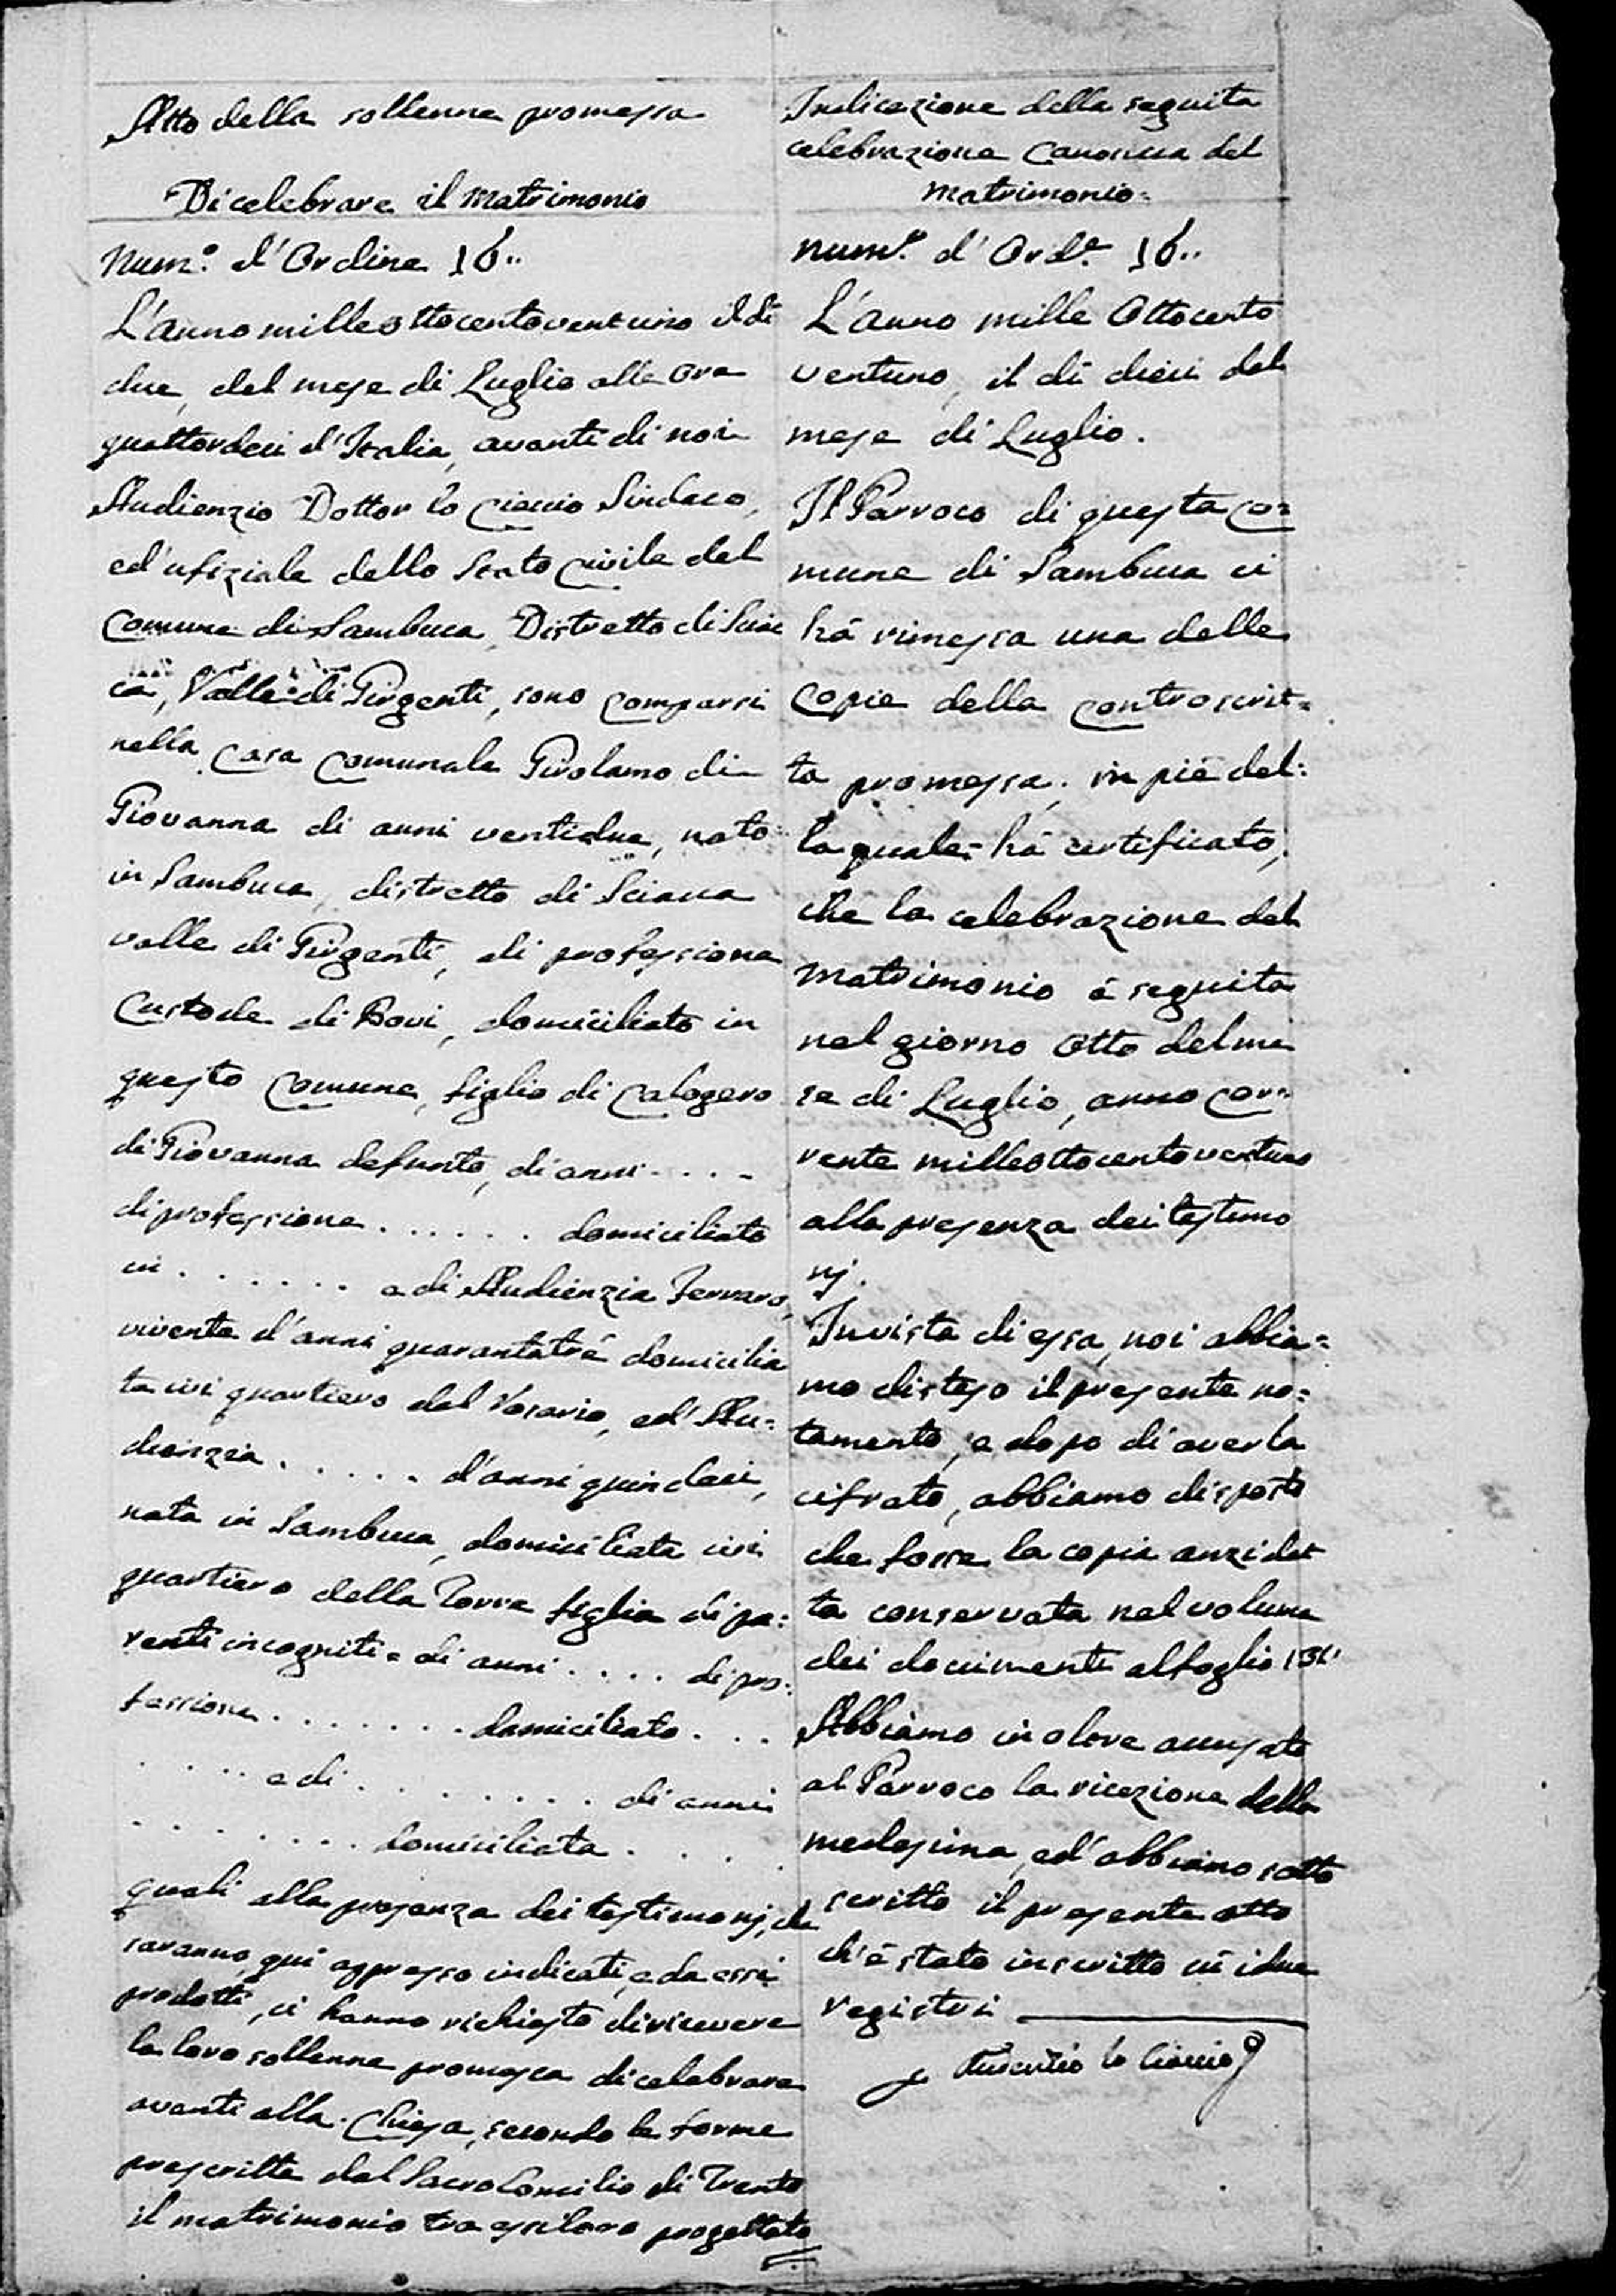 Atto della sollenne promessa
Di celebrare il Matrimonio
Num.º d'Ordine 16..
L'anno mille ottocentoventuno il dì
due, del mese di Luglio alle ore
quattordeci d'Italia, avanti di noi
Audienzio Dottor lo Ciaccio Sindaco,
ed'ufiziale dello Stato Civile del
Comune di Sambuca, Distretto di Sciac
ca, Valle di Girgenti, sono comparsi
nella Casa Comunale Girolamo di
Giovanna di anni ventidue, nato
in Sambuca, distretto di Sciacca
valle di Girgenti, di professione
Custode di Bovi, domiciliato in
questo Comune, figlio di Calogero
di Giovanna defunto, di anni . . . .
di professione . . . . . . domiciliato
in . . . . . . . e di Audienzia Ferraro,
vivente d'anni quarantatrè domicilia
ta ivi quartiero del Rosario, ed' Au=
dienzia . . . . . d'anni quindeci,
nata in Sambuca, domiciliata ivi
quartiero della Torre figlia di pa=
renti incogniti e di anni . . . . di pro=
fessione . . . . . . . domiciliato . . .
. . . . . e di . . . . . . . . di anni
. . . . . . . . domiciliata . . . .
quali alla presenza dei testimonj, che
saranno qui appresso indicati, e da essi
prodotti, ci hanno richiesto di ricevere
la loro sollenne promessa di celebrare
avanti alla Chiesa, secondo le forme
prescritte dal Sacro Concilio di Trento
il matrimonio tra essi loro progettato
Indicazione della seguita
celebrazione Canonica del
Matrimonio=
num.º d'Ord.e 16..
L'Anno mille Ottocento
ventuno, il dì dieci del
mese di Luglio.
Il Parroco di questa Co=
mune di Sambuca ci
hà rimessa una delle
Copie della Controscrit=
ta promessa; in piè del=
la quale hà certificato,
che la celebrazione del
Matrimonio è seguita
nel giorno Otto del me
se di Luglio, anno Cor=
rente milleottocentoventuno
alla presenza dei testimo
nj.
In vista di essa, noi abbia=
mo disteso il presente no=
tamento, e dopo di averla
cifrato, abbiamo disposto
che fosse la copia anzidet
ta conservata nel volume
dei documenti al foglio
Abbiamo in oltre accusato
al Parroco la ricezione della
medesima, ed'abbiamo sotto
scritto il presente atto
ch'è stato inscritto in i due
registri
Audienzio lo Ciaccio